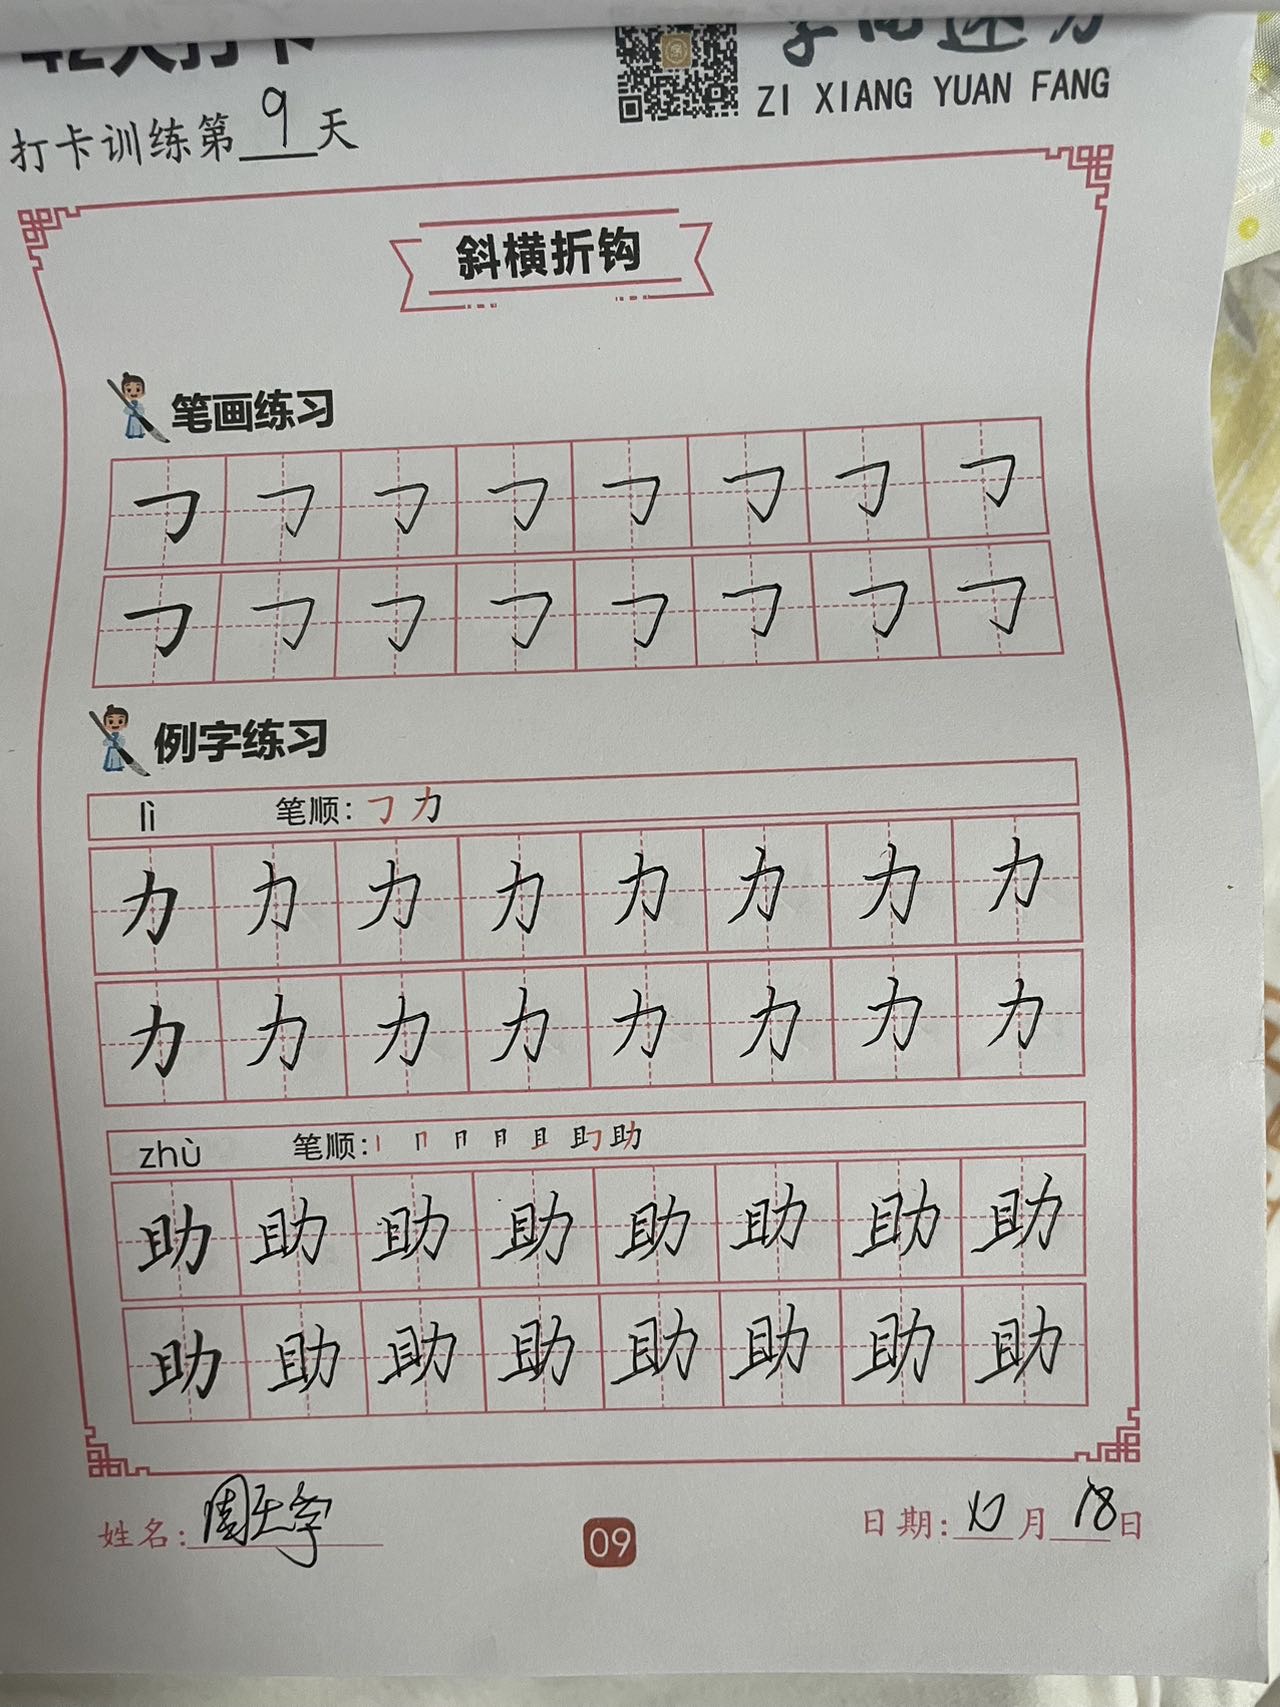 42天打卡
字向远方
ZI XIANG YUAN FANG
打卡训练第9天
斜横折钩
笔画练习
㇆ ㇆ ㇆ ㇆ ㇆ ㇆ ㇆ ㇆
㇆ ㇆ ㇆ ㇆ ㇆ ㇆ ㇆ ㇆
例字练习
lì 笔顺: ㇆ 力
力 力 力 力 力 力 力 力
力 力 力 力 力 力 力 力
zhù 笔顺: 丨 冂 月 月 且 助 助
助 助 助 助 助 助 助 助
助 助 助 助 助 助 助 助
姓名:
09
日期: 月 18日